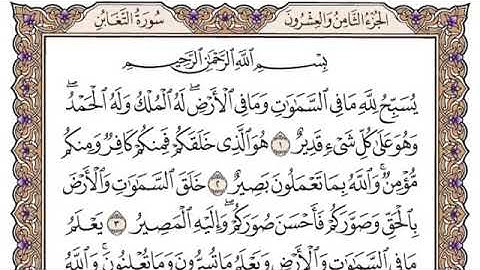 الجزء الثامن والعشرون
سورة التغابن
بِسْمِ اللَّهِ الرَّحْمَٰنِ الرَّحِيمِ
يُسَبِّحُ لِلَّهِ مَا فِي السَّمَاوَاتِ وَمَا فِي الْأَرْضِ ۖ لَهُ الْمُلْكُ وَلَهُ الْحَمْدُ ۖ
وَهُوَ عَلَىٰ كُلِّ شَيْءٍ قَدِيرٌ ١ هُوَ الَّذِي خَلَقَكُمْ فَمِنكُمْ كَافِرٌ وَمِنكُم
مُّؤْمِنٌ ۚ وَاللَّهُ بِمَا تَعْمَلُونَ بَصِيرٌ ٢ خَلَقَ السَّمَاوَاتِ وَالْأَرْضَ
بِالْحَقِّ وَصَوَّرَكُمْ فَأَحْسَنَ صُوَرَكُمْ ۖ وَإِلَيْهِ الْمَصِيرُ ٣ يَعْلَمُ
مَا فِي السَّمَاوَاتِ وَالْأَرْضِ وَيَعْلَمُ مَا تُسِرُّونَ وَمَا تُعْلِنُونَ ۚ وَاللَّهُ